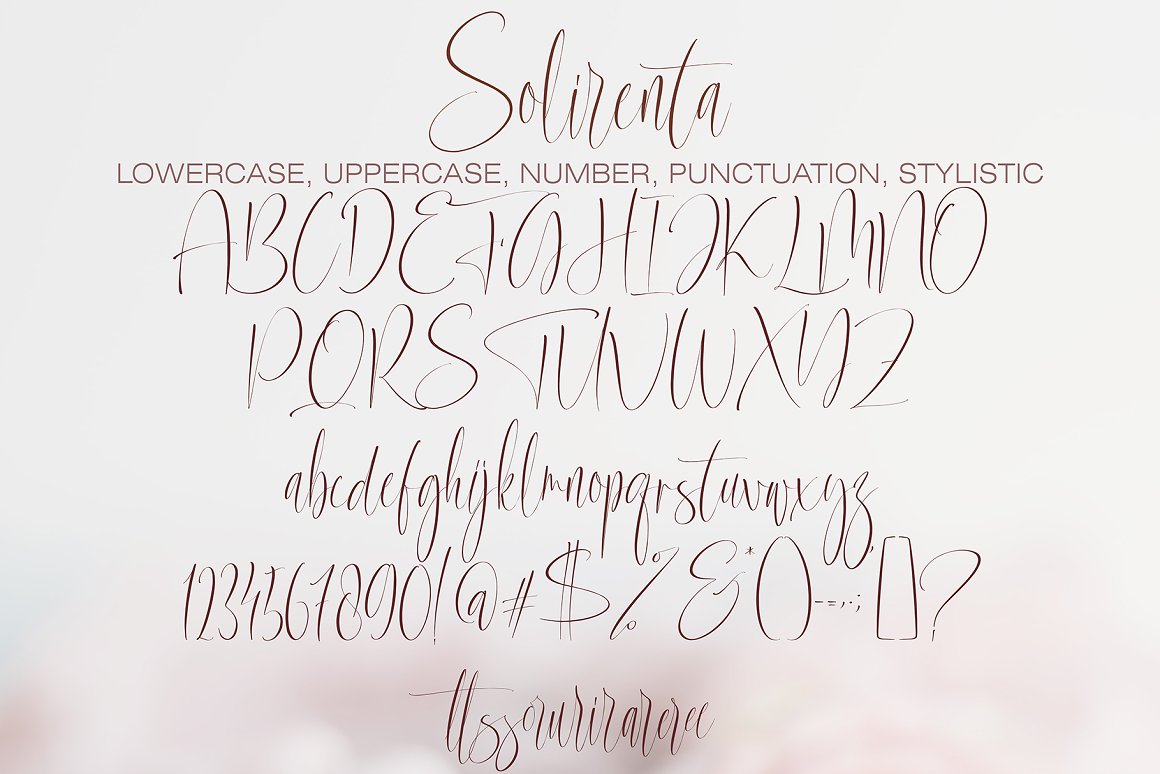 Solirenta
LOWERCASE, UPPERCASE, NUMBER, PUNCTUATION, STYLISTIC
ABCDEFGHIJKLMNO
PQRSTUVWXYZ
abcdefghijklmnopqrstuvwxyz
1234567890!@#$%&*()--=,.;[]?
ttssorurirareree